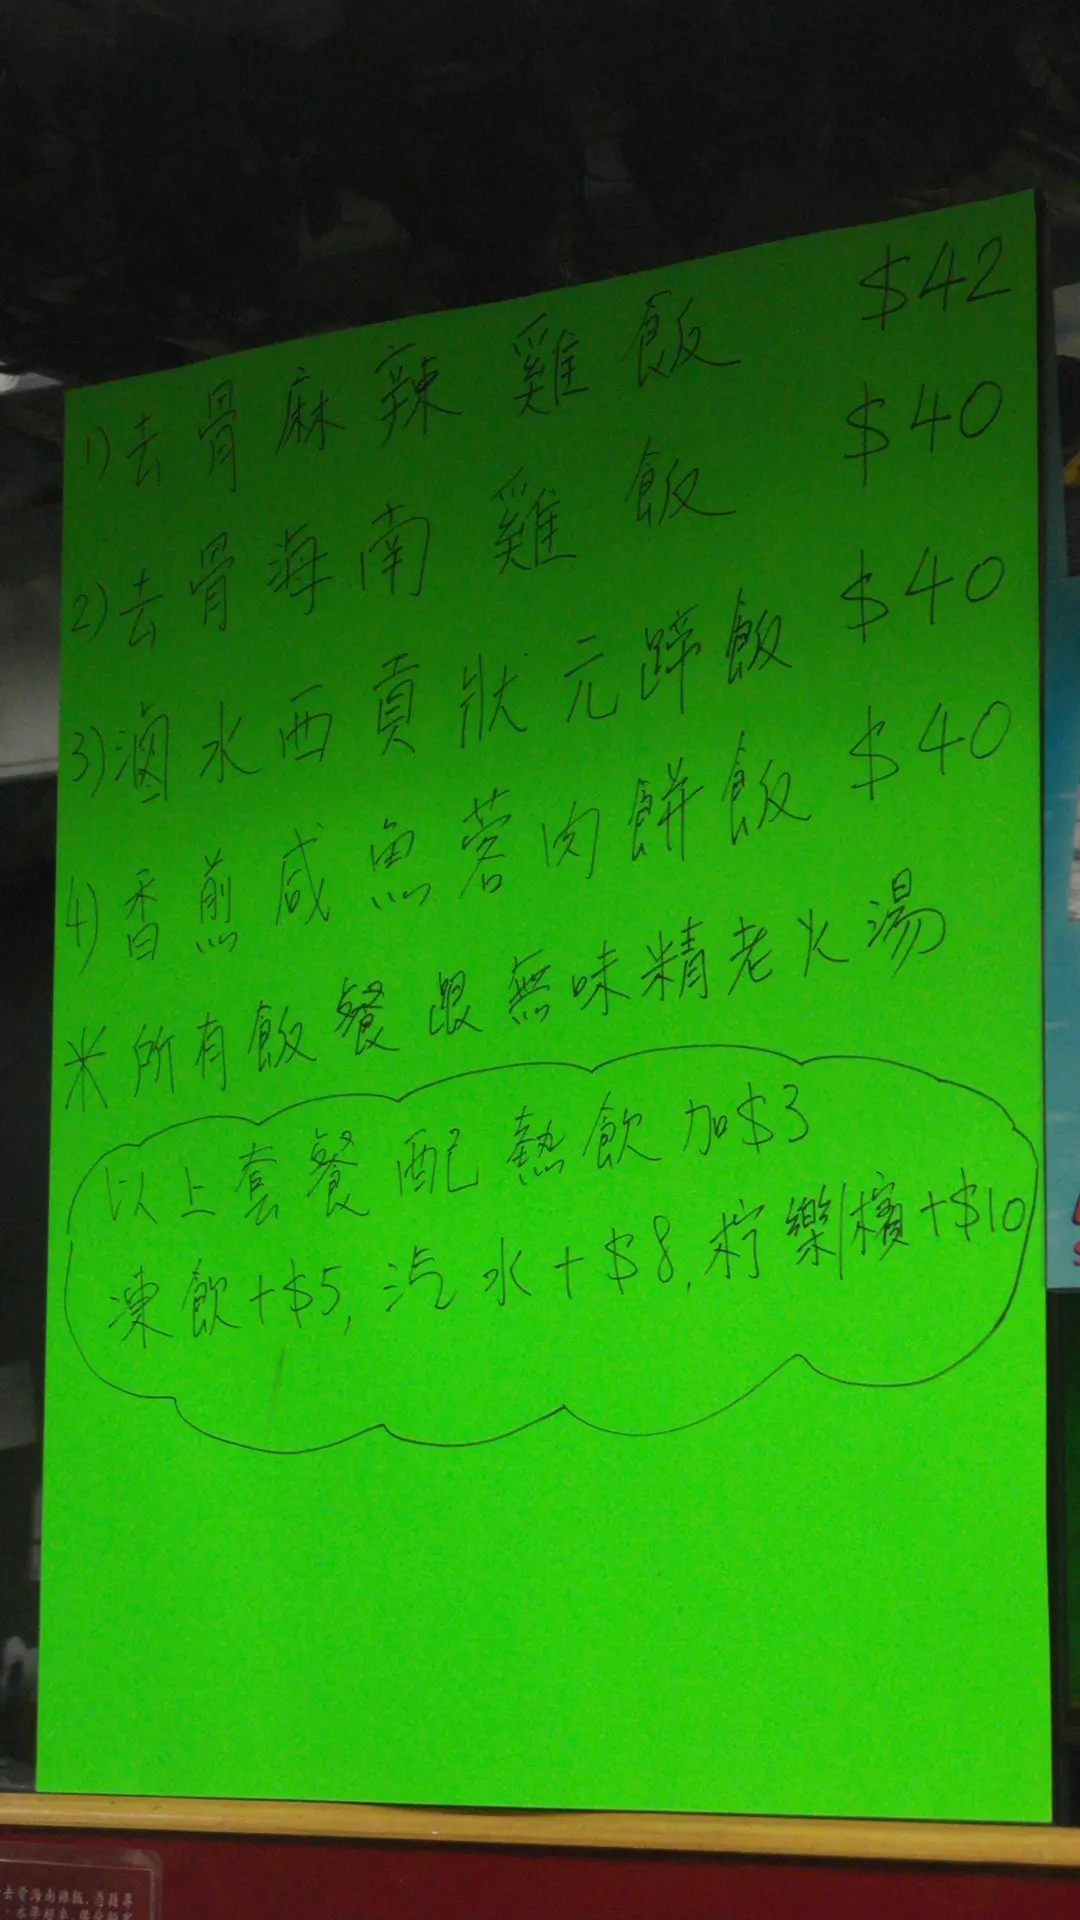 1)去骨麻辣雞飯 $42
2)去骨海南雞飯 $40
3)滷水西貢狀元蹄飯 $40
4)香煎咸魚蓉肉餅飯 $40
米所有飯餐跟無味精老火湯
以上套餐配熱飲加$3
凍飲+$5,汽水+$8,柠樂/檳+$10
去骨海南雞飯、